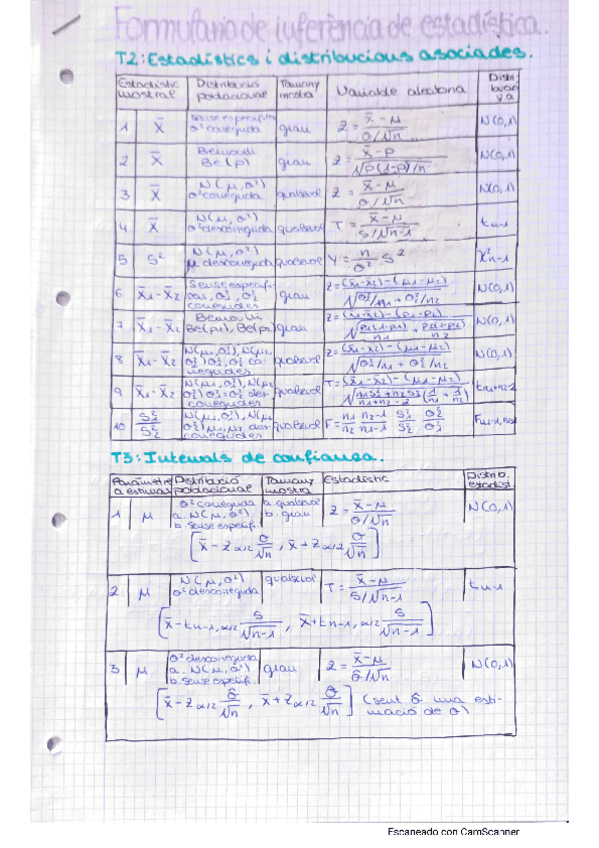 Formulario de inferència de estadística.
T2: Estadístics i distribucions asociades.
Estadístic mostral | Distribució poblacional | Tamany mostra | Variable aleatoria | Distribución v.a
1 | X̄ | sense especificar σ² coneguda | gran | Z = (X̄ - μ) / (σ/√n) | N(0,1)
2 | X̄ | Bernoulli Be(p) | gran | Z = (X̄ - p) / √(p(1-p)/n) | N(0,1)
3 | X̄ | N(μ, σ²) σ² coneguda | qualsevol | Z = (X̄ - μ) / (σ/√n) | N(0,1)
4 | X̄ | N(μ, σ²) σ² desconeguda | qualsevol | T = (X̄ - μ) / (S/√n-1) | tn-1
5 | S² | N(μ, σ²) μ desconeguda | qualsevol | Y = n/σ² S² | X²n-1
6 | X̄1 - X̄2 | Sense especificar, σ²1, σ²2 conegudes | gran | Z = (X̄1 - X̄2) - (μ1 - μ2) / √(σ²1/n1 + σ²2/n2) | N(0,1)
7 | X̄1 - X̄2 | Bernoulli Be(p1), Be(p2) | gran | Z = (X̄1 - X̄2) - (p1 - p2) / √(p1(1-p1)/n1 + p2(1-p2)/n2) | N(0,1)
8 | X̄1 - X̄2 | N(μ1, σ²1), N(μ2, σ²2) σ²1, σ²2 conegudes | qualsevol | Z = (X̄1 - X̄2) - (μ1 - μ2) / √(σ²1/n1 + σ²2/n2) | N(0,1)
9 | X̄1 - X̄2 | N(μ1, σ²1), N(μ2, σ²2) σ²1 = σ²2 desconegudes | qualsevol | T = (X̄1 - X̄2) - (μ1 - μ2) / √(n1S²1 + n2S²2 / n1 + n2 - 2 (1/n1 + 1/n2)) | tn1+n2-2
10 | S²1/S²2 | N(μ1, σ²1), N(μ2, σ²2) μ1, μ2 desconegudes | qualsevol | F = n1/n2 n2-1/n1-1 S²1/S²2 σ²2/σ²1
T3: Intervals de confiança.
Paràmetre a estimar | Distribució poblacional | Tamany mostra | Estadístic | Distrib. estadíst.
1 | μ | σ² coneguda a. N(μ, σ²) b. sense especif. | a. qualsevol b. gran | Z = (X̄ - μ) / (σ/√n) | N(0,1)
[X̄ - Zα/2 σ/√n , X̄ + Zα/2 σ/√n]
2 | μ | N(μ, σ²) σ² desconeguda | qualsevol | T = (X̄ - μ) / (S/√n-1) | tn-1
[X̄ - tn-1, α/2 S/√n-1 , X̄ + tn-1, α/2 S/√n-1]
3 | μ | σ² desconeguda a. N(μ, σ²) b. sense especif. | gran | Z = (X̄ - μ) / (σ̂/√n) | N(0,1)
[X̄ - Zα/2 σ̂/√n , X̄ + Zα/2 σ̂/√n] (sent σ̂ una estimació de σ)
Escaneado con CamScanner